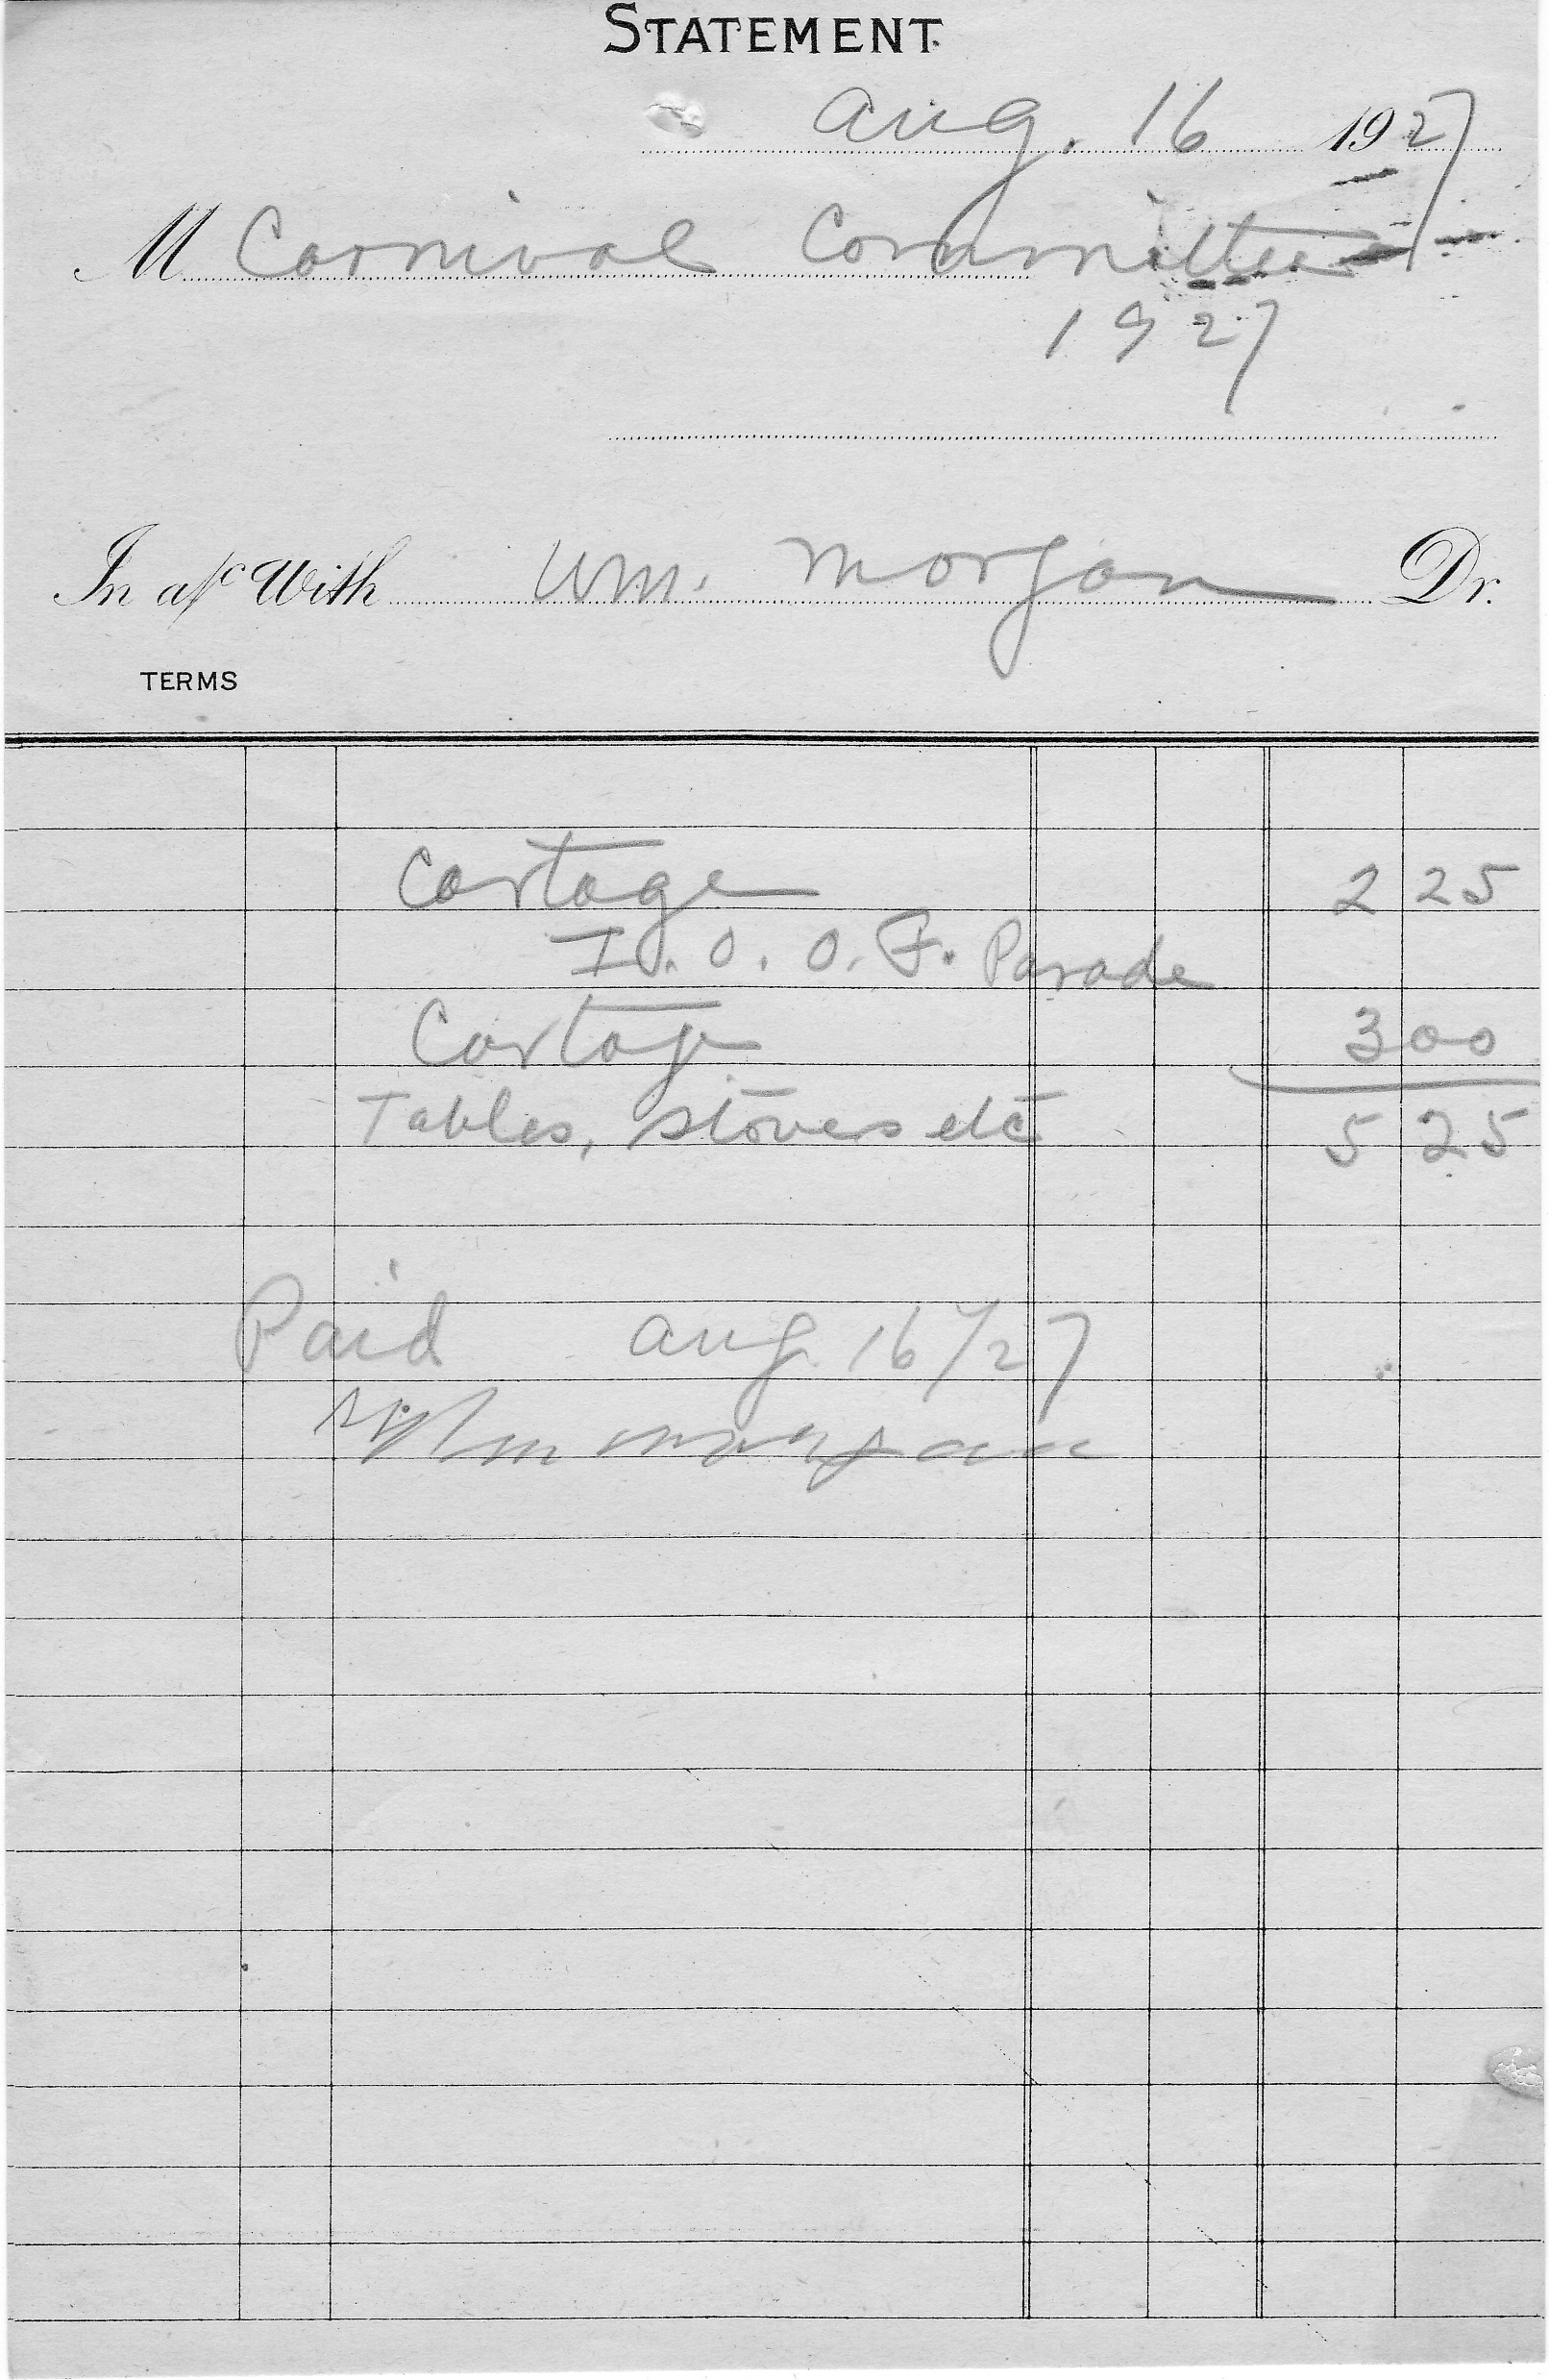 STATEMENT
Aug. 16 1927
M Carnival Committee
1927
In a/c With Wm. Morgan Dr.
TERMS
Cartage 2 25
I.O.O.F. Parade
Cartage 3 00
Tables, stoves etc 5 25
Paid Aug 16/27
Wm Morgan